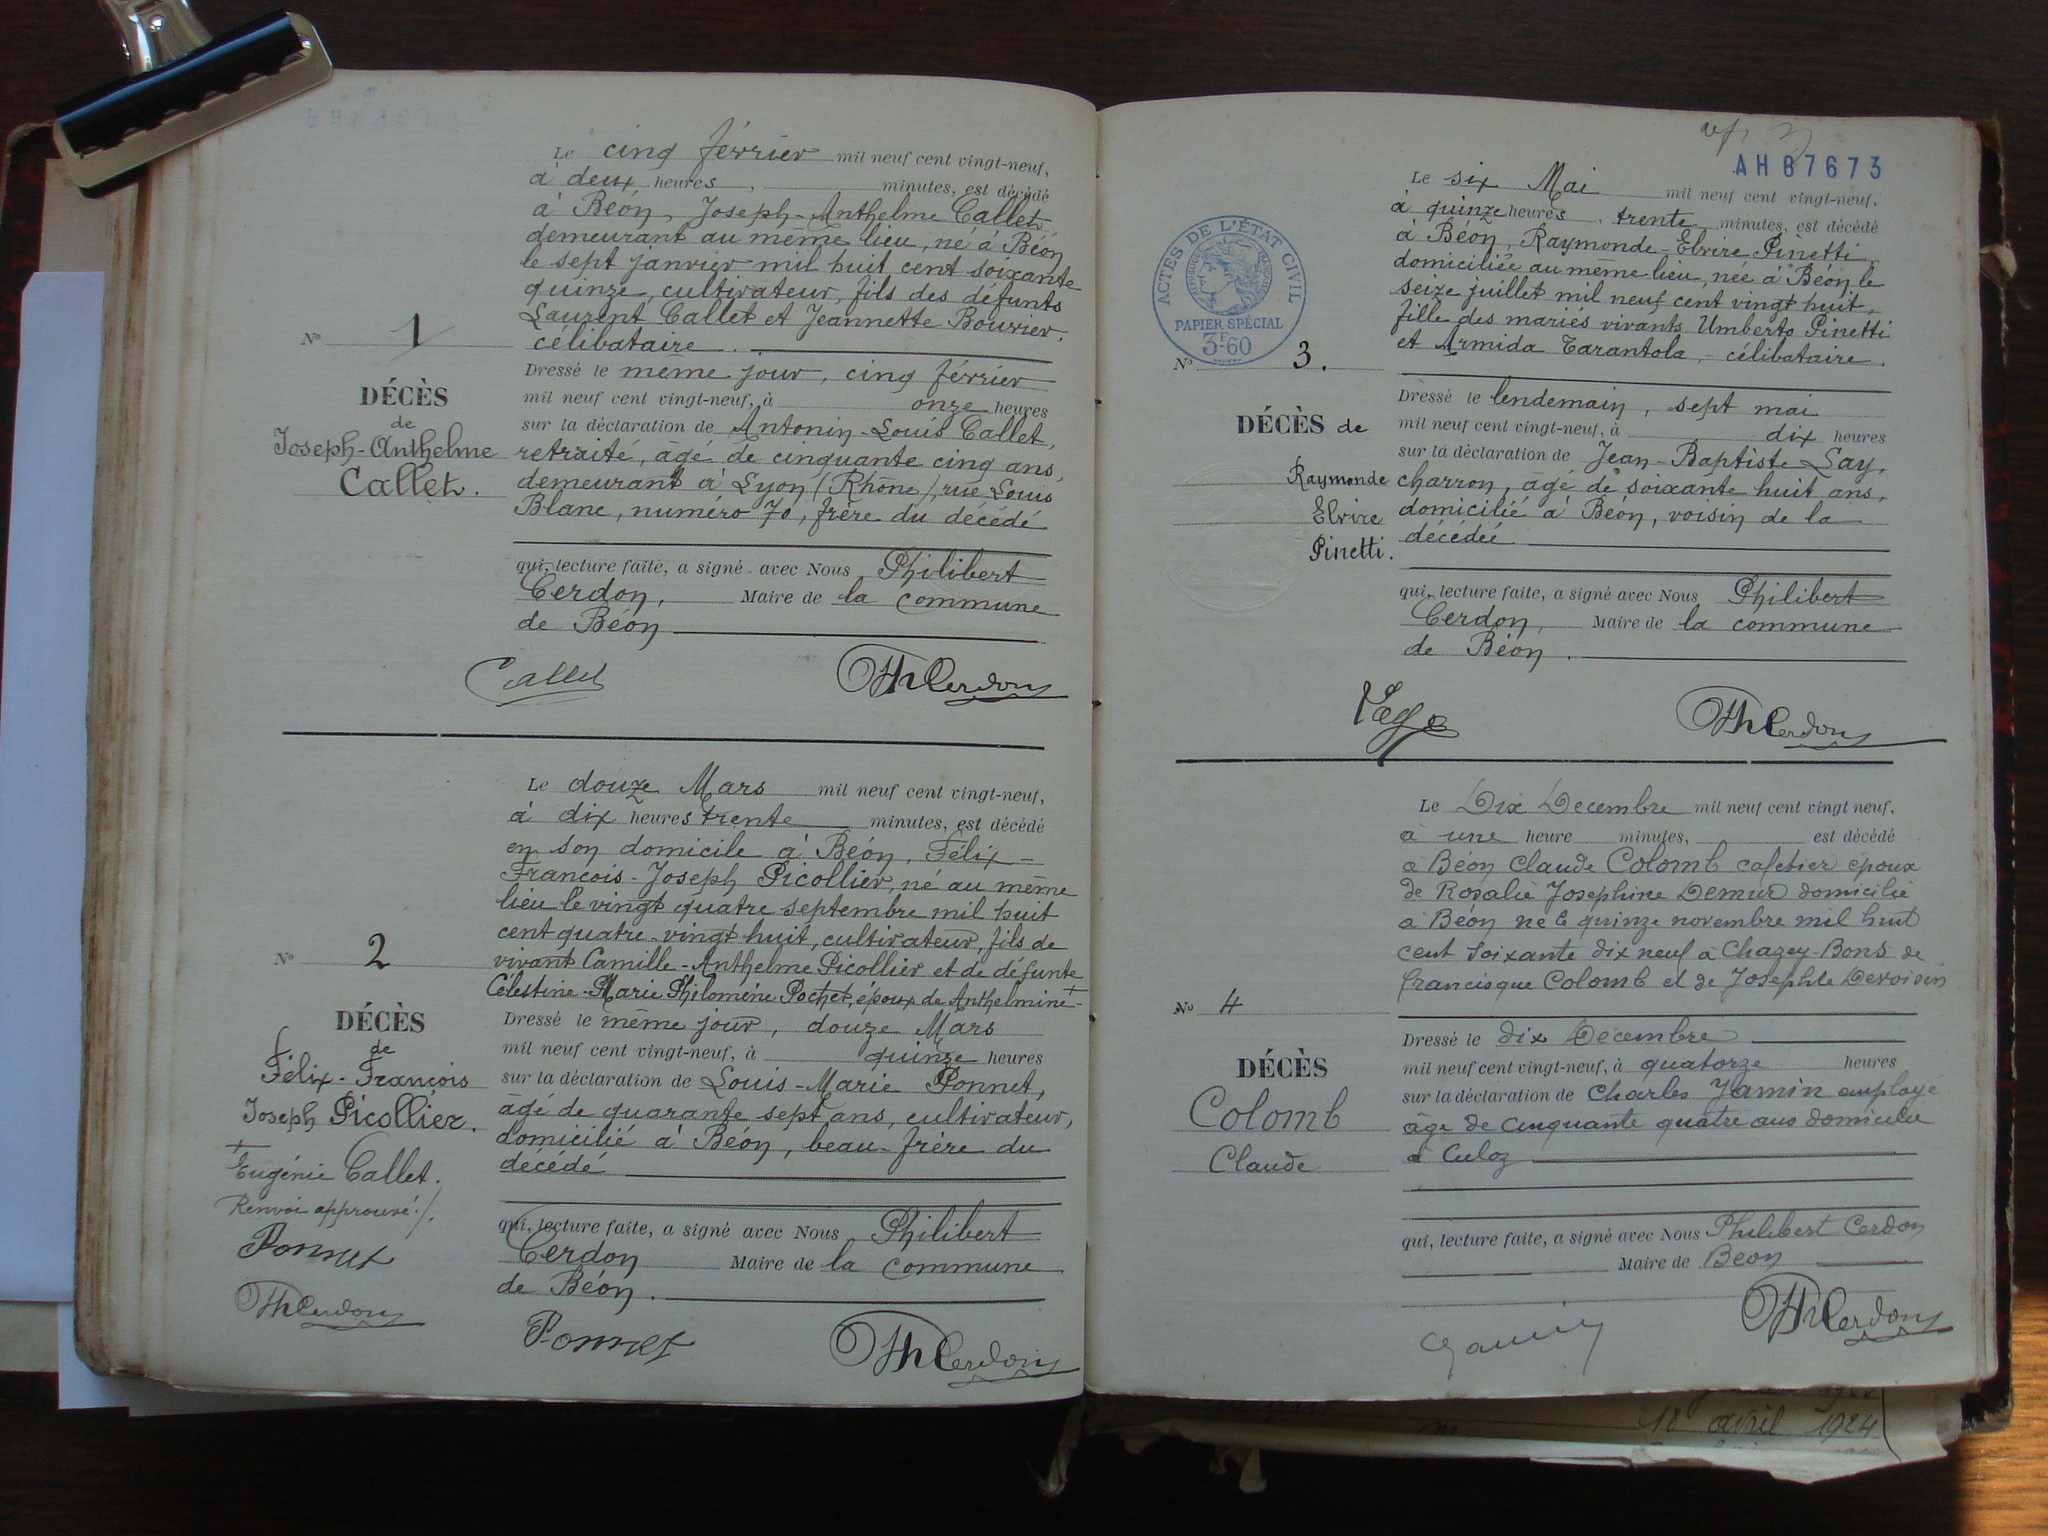 Le cinq février mil neuf cent vingt-neuf,
à deux heures, minutes, est décédé
à Béon, Joseph-Anthelme Callet,
demeurant au même lieu, né à Béon
le sept janvier mil huit cent soixante
quinze, cultivateur, fils des défunts
Laurent Callet et Jeannette Bouvier.
célibataire.
No 1
DÉCÈS
de
Joseph-Anthelme
Callet.
Dressé le même jour, cinq février
mil neuf cent vingt-neuf, à onze heures
sur la déclaration de Antonin-Louis Callet,
retraité, âgé de cinquante cinq ans,
demeurant à Lyon (Rhône), rue Louis
Blanc, numéro 70, frère du décédé
qui, lecture faite, a signé avec Nous Philibert
Cerdon, Maire de la commune
de Béon
Callet PhCerdon
Le douze Mars mil neuf cent vingt-neuf,
à dix heures trente minutes, est décédé
en son domicile à Béon, Félix-
François-Joseph Picollier, né au même
lieu le vingt quatre septembre mil huit
cent quatre-vingt huit, cultivateur, fils de
vivant Camille-Anthelme Picollier et de défunte
Célestine-Marie Philomène Pochet, époux de Anthelmine +
No 2
DÉCÈS
de
Félix-François
Joseph Picollier.
+
Eugénie Callet.
Renvoi approuvé ./.
Ponnet
PhCerdon
Dressé le même jour, douze Mars
mil neuf cent vingt-neuf, à quinze heures
sur la déclaration de Louis-Marie Ponnet,
âgé de quarante sept ans, cultivateur,
domicilié à Béon, beau-frère du
décédé
qui, lecture faite, a signé avec Nous Philibert
Cerdon Maire de la commune
de Béon.
Ponnet PhCerdon
AH87673
ACTES DE L'ÉTAT CIVIL
PAPIER SPÉCIAL
3F60
Le six Mai mil neuf cent vingt-neuf,
à quinze heures, trente minutes, est décédé
à Béon, Raymonde-Elvire Pinetti
domiciliée au même lieu, née à Béon le
seize juillet mil neuf cent vingt huit,
fille des mariés vivants Umberto Pinetti
et Armida Tarantola, - célibataire.
No 3.
DÉCÈS de
Raymonde
Elvire
Pinetti.
Dressé le lendemain, sept mai
mil neuf cent vingt-neuf, à dix heures
sur la déclaration de Jean-Baptiste Lay,
charron, âgé de soixante huit ans,
domicilié à Béon, voisin de la
décédée
qui, lecture faite, a signé avec Nous Philibert
Cerdon, Maire de la commune
de Béon.
PhCerdon
Le Dix Decembre mil neuf cent vingt neuf,
à une heure minutes, est décédé
a Béon Claude Colomb cafetier époux
de Rosalie Josephine Demur domicilié
a Béon né le quinze novembre mil huit
cent soixante dix neuf à Chazey-Bons de
francisque Colomb et de Josephte Devoivin
No 4
DÉCÈS
Colomb
Claude
Dressé le dix Décembre
mil neuf cent vingt-neuf, à quatorze heures
sur la déclaration de Charles Jamin employé
âge de cinquante quatre ans domicilié
à Culoz
qui, lecture faite, a signé avec Nous Philibert Cerdon
Maire de Béon
Jamin PhCerdon
18 avril 1924